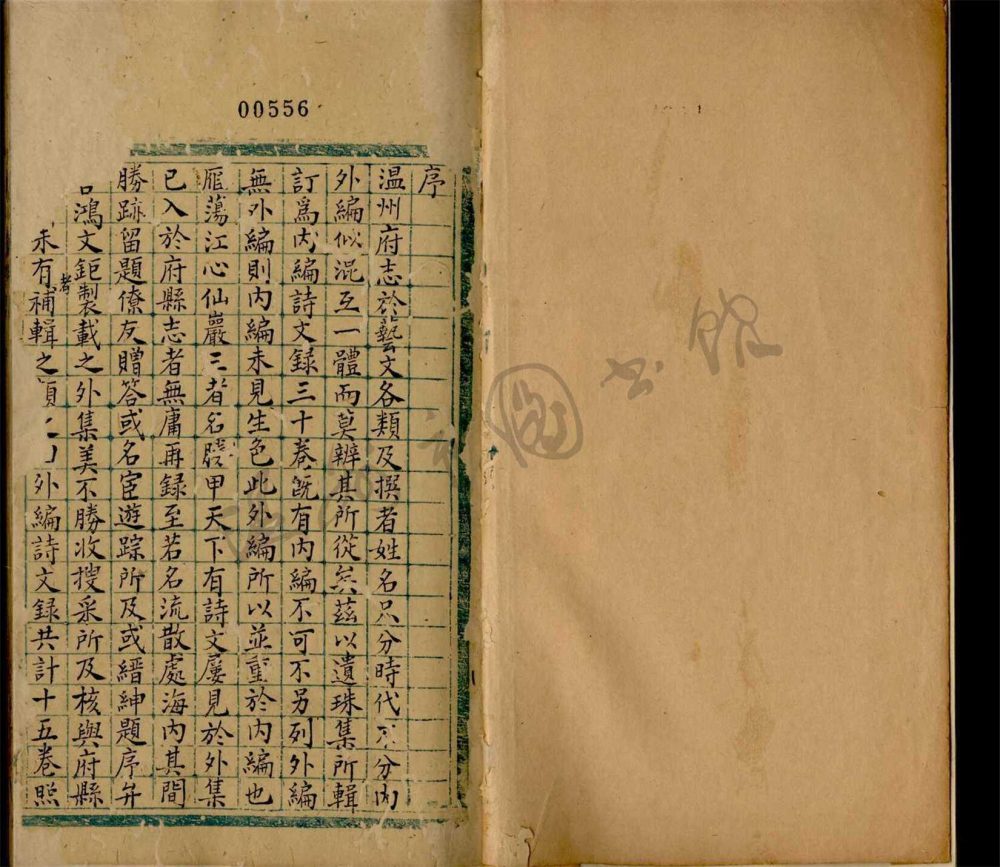 00556
序
温州府志於藝文各類及撰者姓名只分時代不分內
外編似混互一體而莫辨其所從矣茲以遺珠集所輯
訂爲內編詩文録三十卷旣有內編不可不另列外編
無外編則內編未見生色此外編所以並重於內編也
雁蕩江心仙巖三者名勝甲天下有詩文屢見於外集
已入於府縣志者無庸再録至若名流散處海內其間
勝跡留題僚友贈答或名宦遊踪所及或縉紳題序弁
鴻文鉅製載之外集美不勝收搜采所及核與府縣
未有補輯之 外編詩文録共計十五卷照
者
圖書館